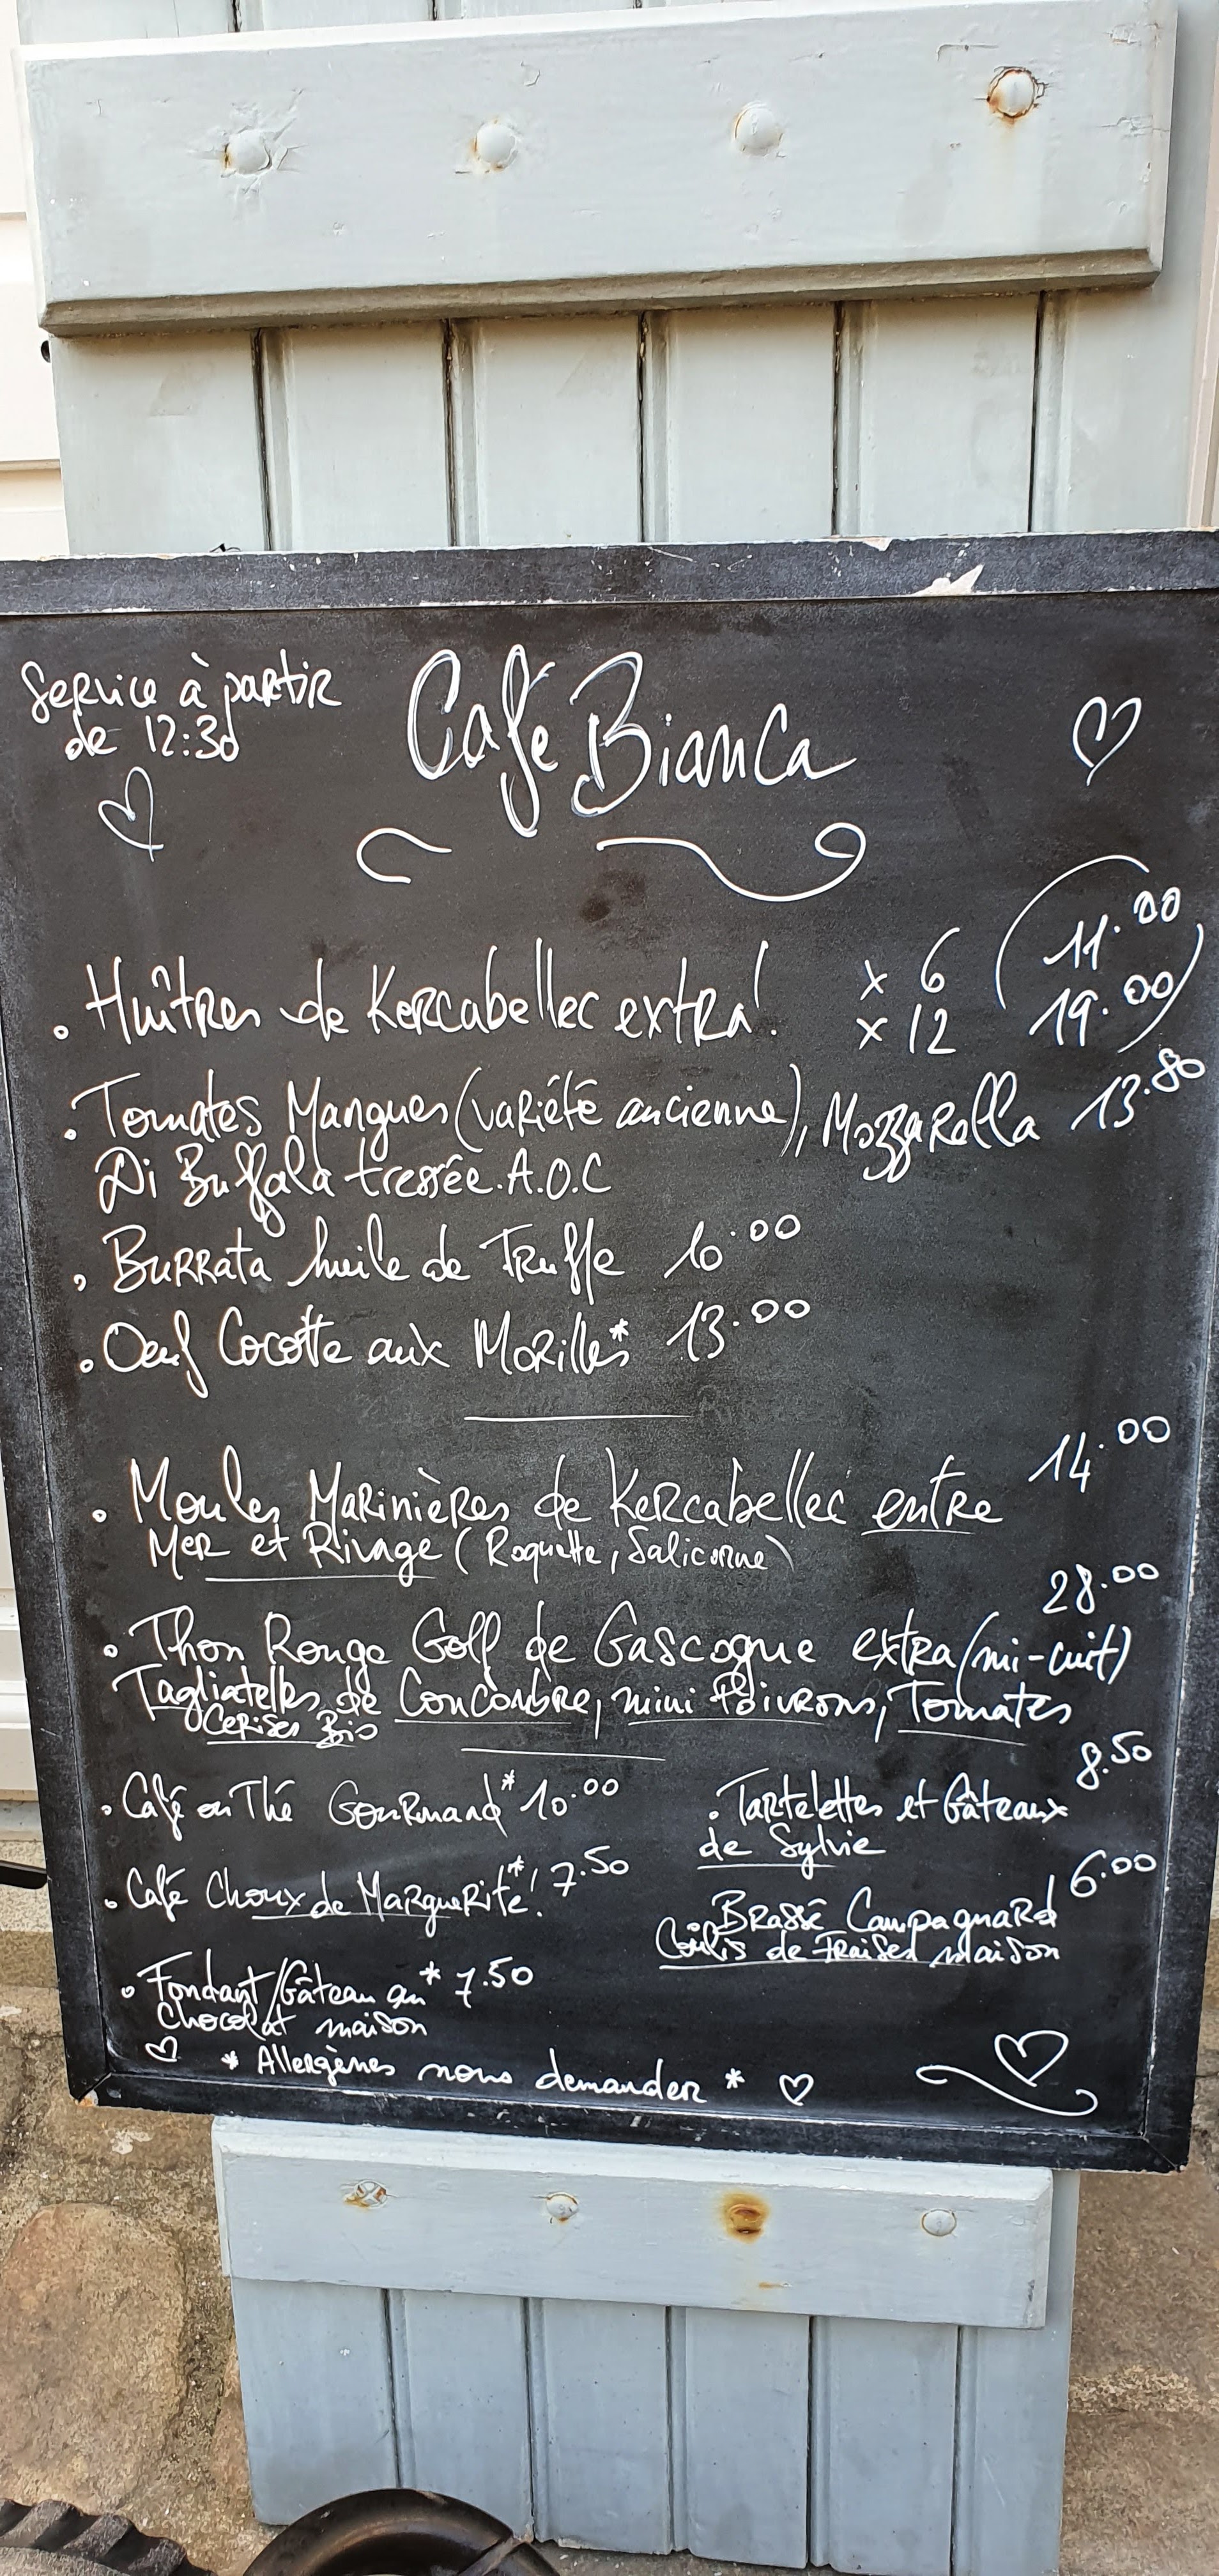 Service à partir
de 12:30
Café Bianca
. Huîtres de Kercabellec extra! x 6 (11.00
x 12 19.00)
. Tomates Mangues (variété ancienne), Mozzarella 13.80
Di Buffala tressée. A.O.C
. Burrata huile de Truffe 10.00
. Oeuf Cocotte aux Morilles* 13.00
. Moules Marinières de Kercabellec entre 14.00
Mer et Rivage (Roquette, Salicorne)
28.00
. Thon Rouge Golf de Gascogne extra (mi-cuit)
Tagliatelles de Concombre, mini Poivrons, Tomates
Cerises Bio
. Café ou Thé Gourmand* 10.00
. Café Choux de Marguerite*! 7.50
. Fondant/Gâteau au* 7.50
Chocolat maison
. Tartelettes et Gâteaux 8.50
de Sylvie
Brassé Campagnard 6.00
Coulis de Fraises maison
* Allergènes nous demander *